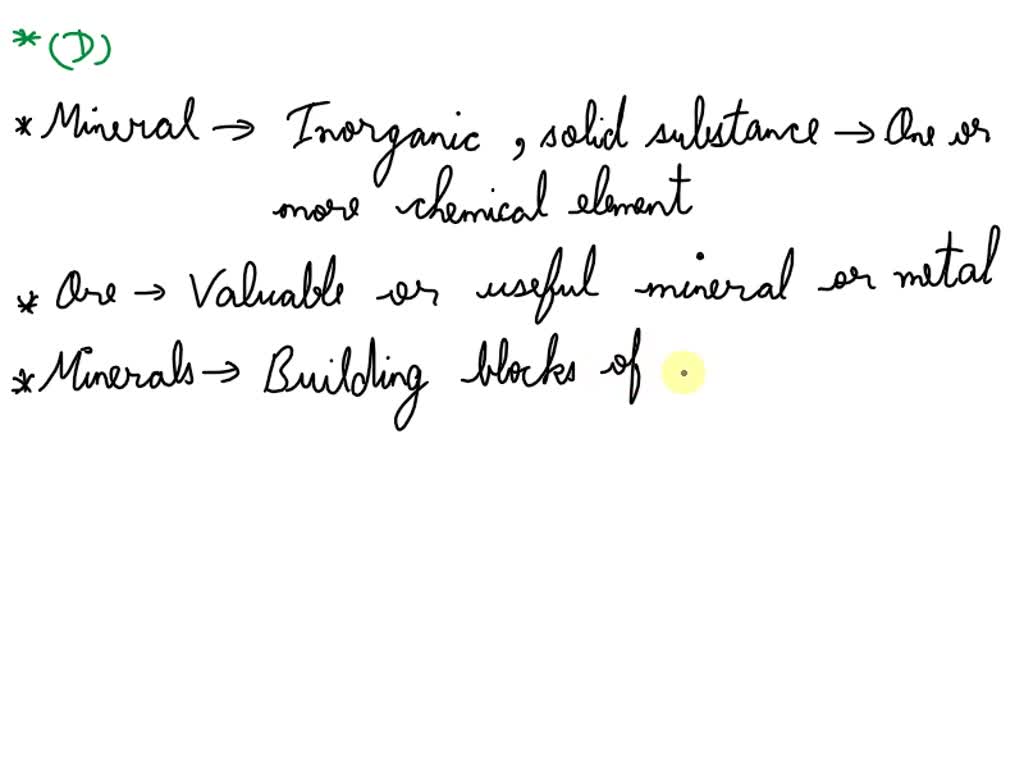 * (D)
* Mineral → Inorganic, solid substance → One or
more chemical element
* Ore → Valuable or useful mineral or metal
* Minerals → Building blocks of